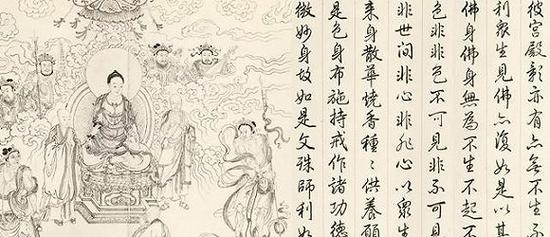 彼宮殿影亦有亦無不生不
利眾生見佛亦復如是以其
佛身佛身無為不生不起不
色非非色不可見非不可見
非世間非心非非心以眾生
来身散華燒香種〻供養願
是色身布施持戒作諸功德
微妙身故如是文殊師利如